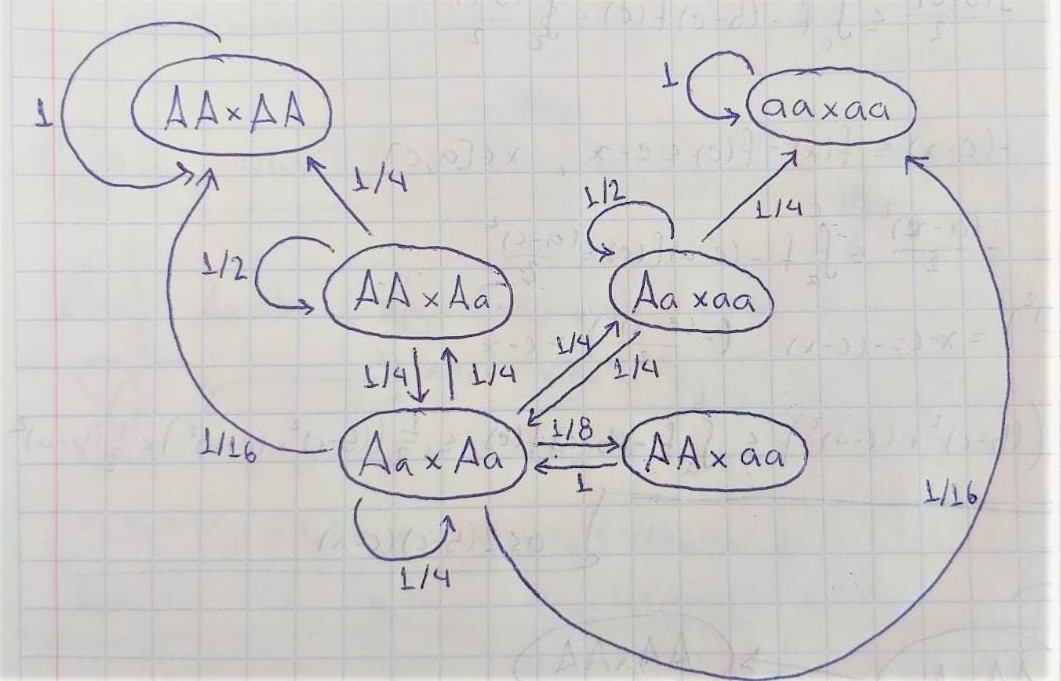 1
AA×AA
1
aa×aa
1/4
1/2
1/4
1/2
AA×Aa
Aa×aa
1/4
1/4
1/4
1/4
1/16
Aa×Aa
1/8
1
AA×aa
1/16
1/4